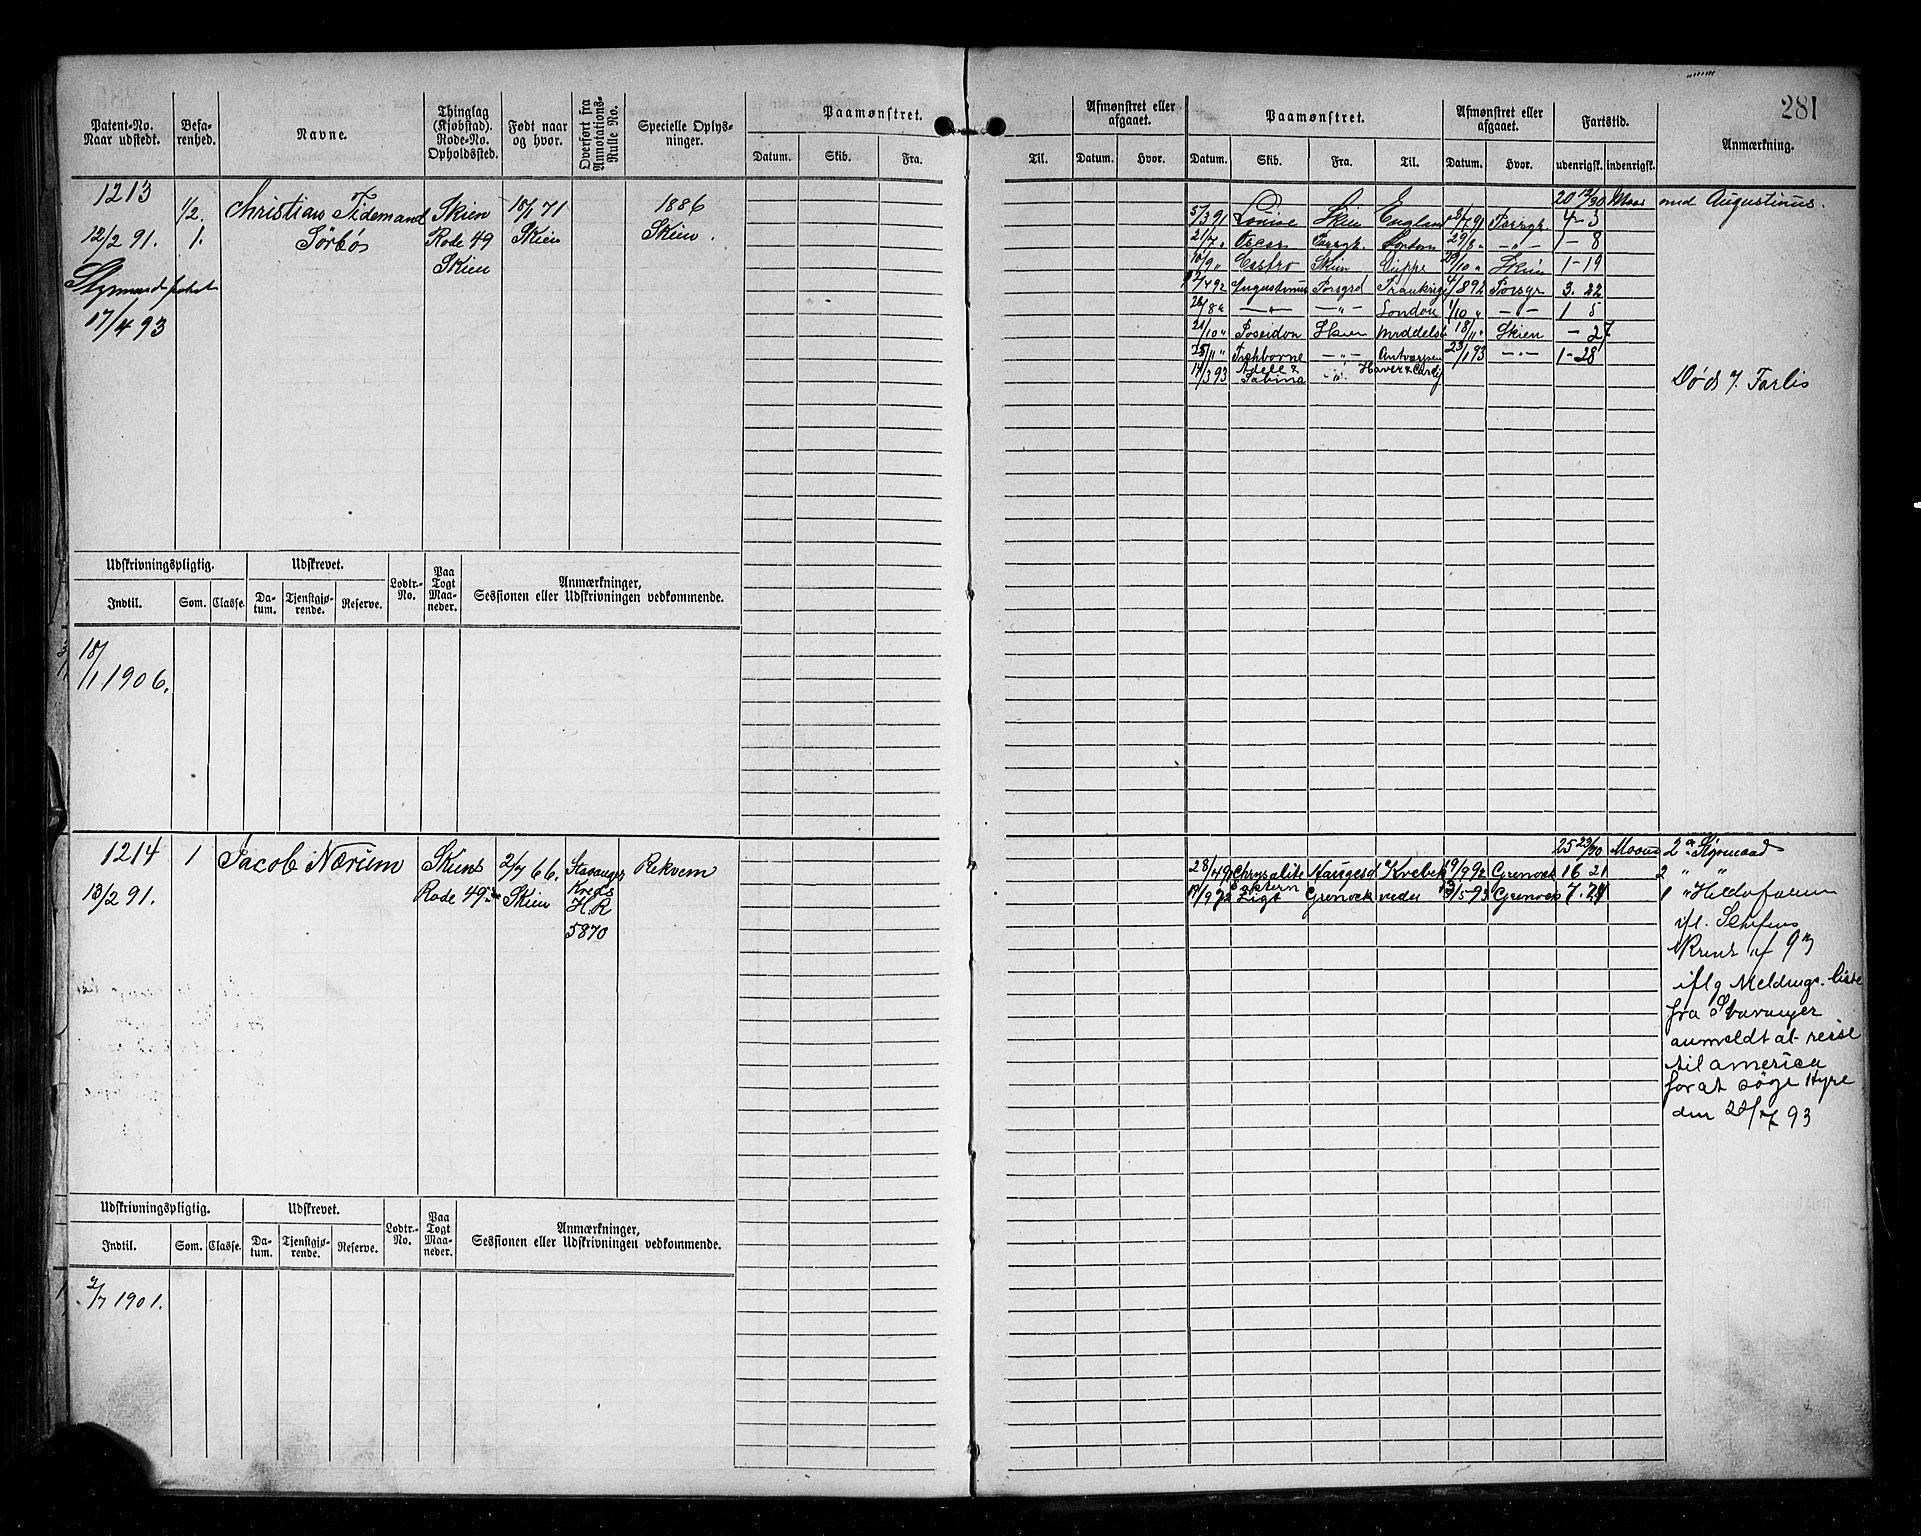 281
Patent-No. Naar udstedt.
Befarenhed.
Navne.
Thinglag (Kjøbstad). Rode-No. Opholdssted.
Født naar og hvor.
Overført fra Annotations-Rulle No.
Specielle Oplysninger.
Paamønstret.
Datum. Skib. Fra.
Til.
Afmønstret eller afgaaet.
Datum. Hvor.
Paamønstret.
Datum. Skib. Fra. Til.
Afmønstret eller afgaaet.
Datum. Hvor.
Fartstid.
udenrigsk. indenrigsk.
Anmærkning.
1213
12/2 91.
17/4 93
1/2.
1.
Christian Tidemand
Sørbøs
Skien
Rode 49
Skien
18/1 71
Skien
1886
Skien.
20 12/30 Maas med Augustinus.
5/3 91 Louise Skien England 79 Porsgr. 4-3
21/7 " Oscar Porsgr. London 29/8 " -"- 1-8
10/9 " Castro Skien Dieppe /10 " Skien 1-19
/4 92 Augustinus Porsgrd Frankrige 4/8 92 Porsgr 3. 22
26/8 " -"- -"- London 1/10 " -"- 1 5
21/10 " Poseidon Skien Middelsb 18/11 " Skien - 27
25/11 " -"- Antwerpen 23/1 93 -"- 1-28
14/3 93 Adele & Sabina -"-
Død
Udskrivningspligtig. Udskrevet. Lodtr.-No. Paa Togt Maaneder. Anmærkninger,
Sessionen eller Udskrivningen vedkommende.
Indtil. Som. Classe. Datum. Tjenstgjørende. Reserve.
18/1 1906.
1214
13/2 91.
1
Jacob Nærum
Skiens
Rode 49
2/7 66.
Skien
Stavanger
Kreds
H.R
5870
Rekvem
25 23/30 2 Styrmand
28/4 91 Chrysolite Haugesd Kvebek 19/9 92 Grenock 16 21 2 " "
19/9 92 Eastern Ligt Grenock 13/5 93 Grenock 7. 24 1 "
ifl.
iflg Meldings-liste
fra Stavanger
anmeldt at reise
til america
for at søge Hyre
den 22/7 93
Udskrivningspligtig. Udskrevet. Lodtr.-No. Paa Togt Maaneder. Anmærkninger,
Sessionen eller Udskrivningen vedkommende.
Indtil. Som. Classe. Datum. Tjenstgjørende. Reserve.
2/7 1901.